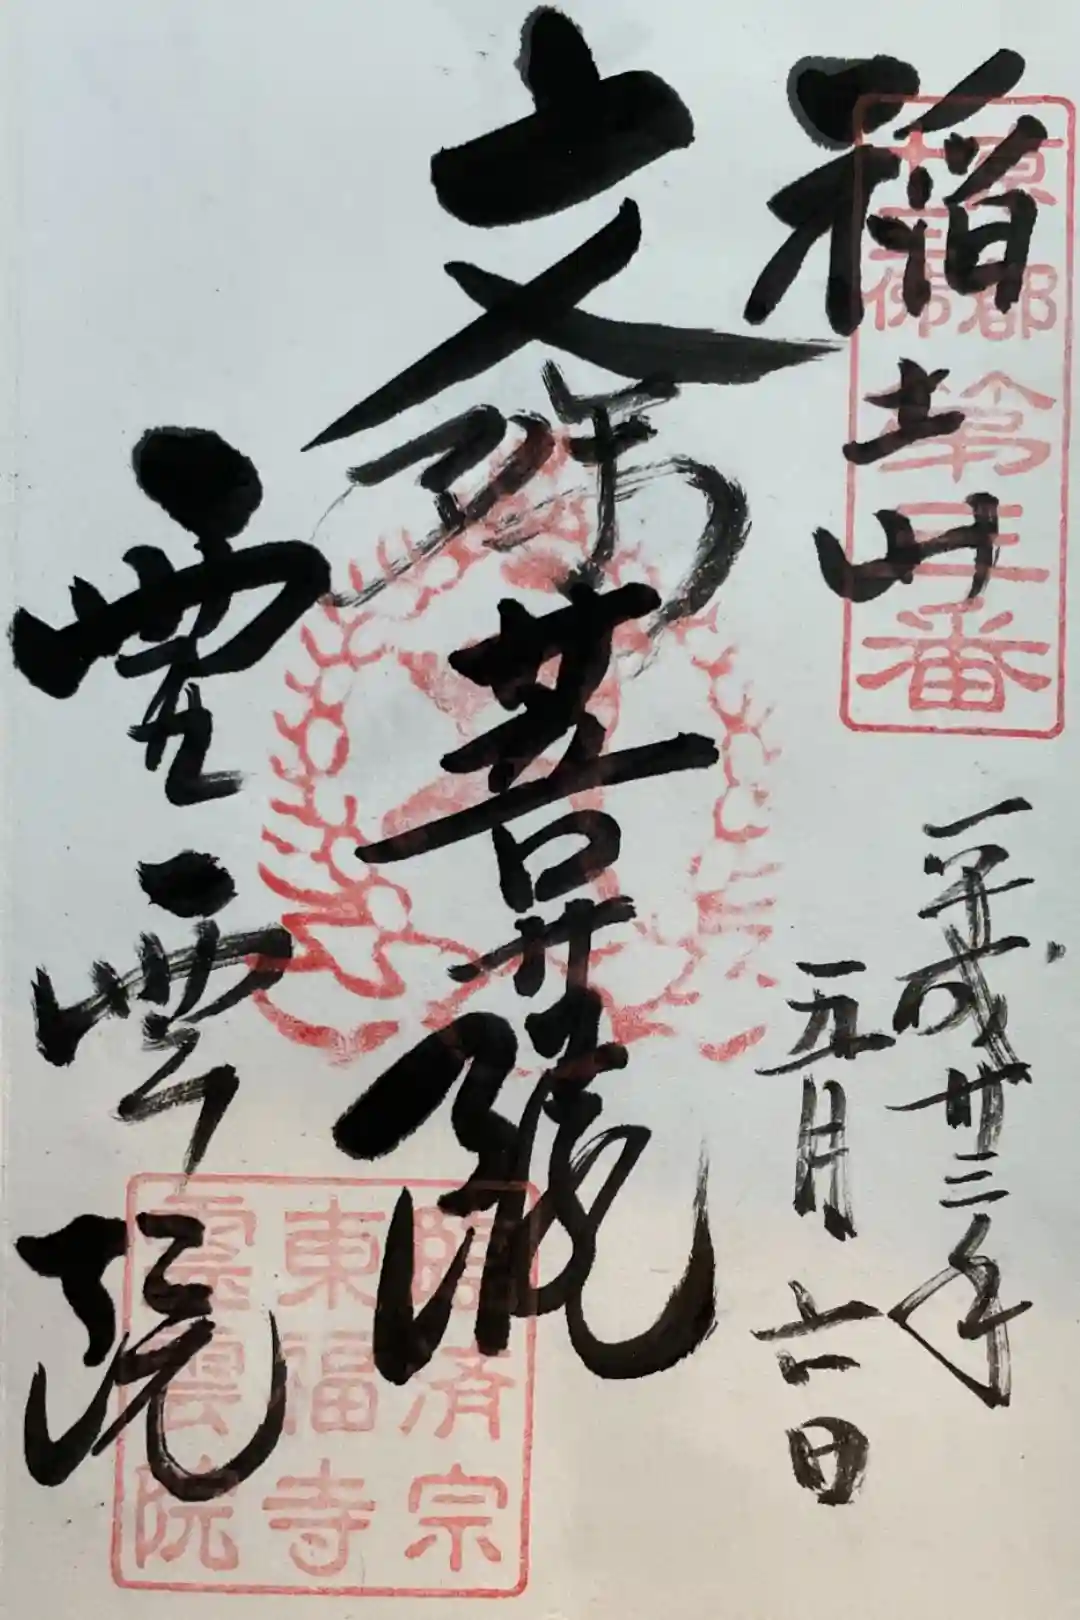 京都
十三佛
第三番
稲土山
平成廿三年
五月六日
文殊菩薩
霊雲院
臨済宗
東福寺
霊雲院